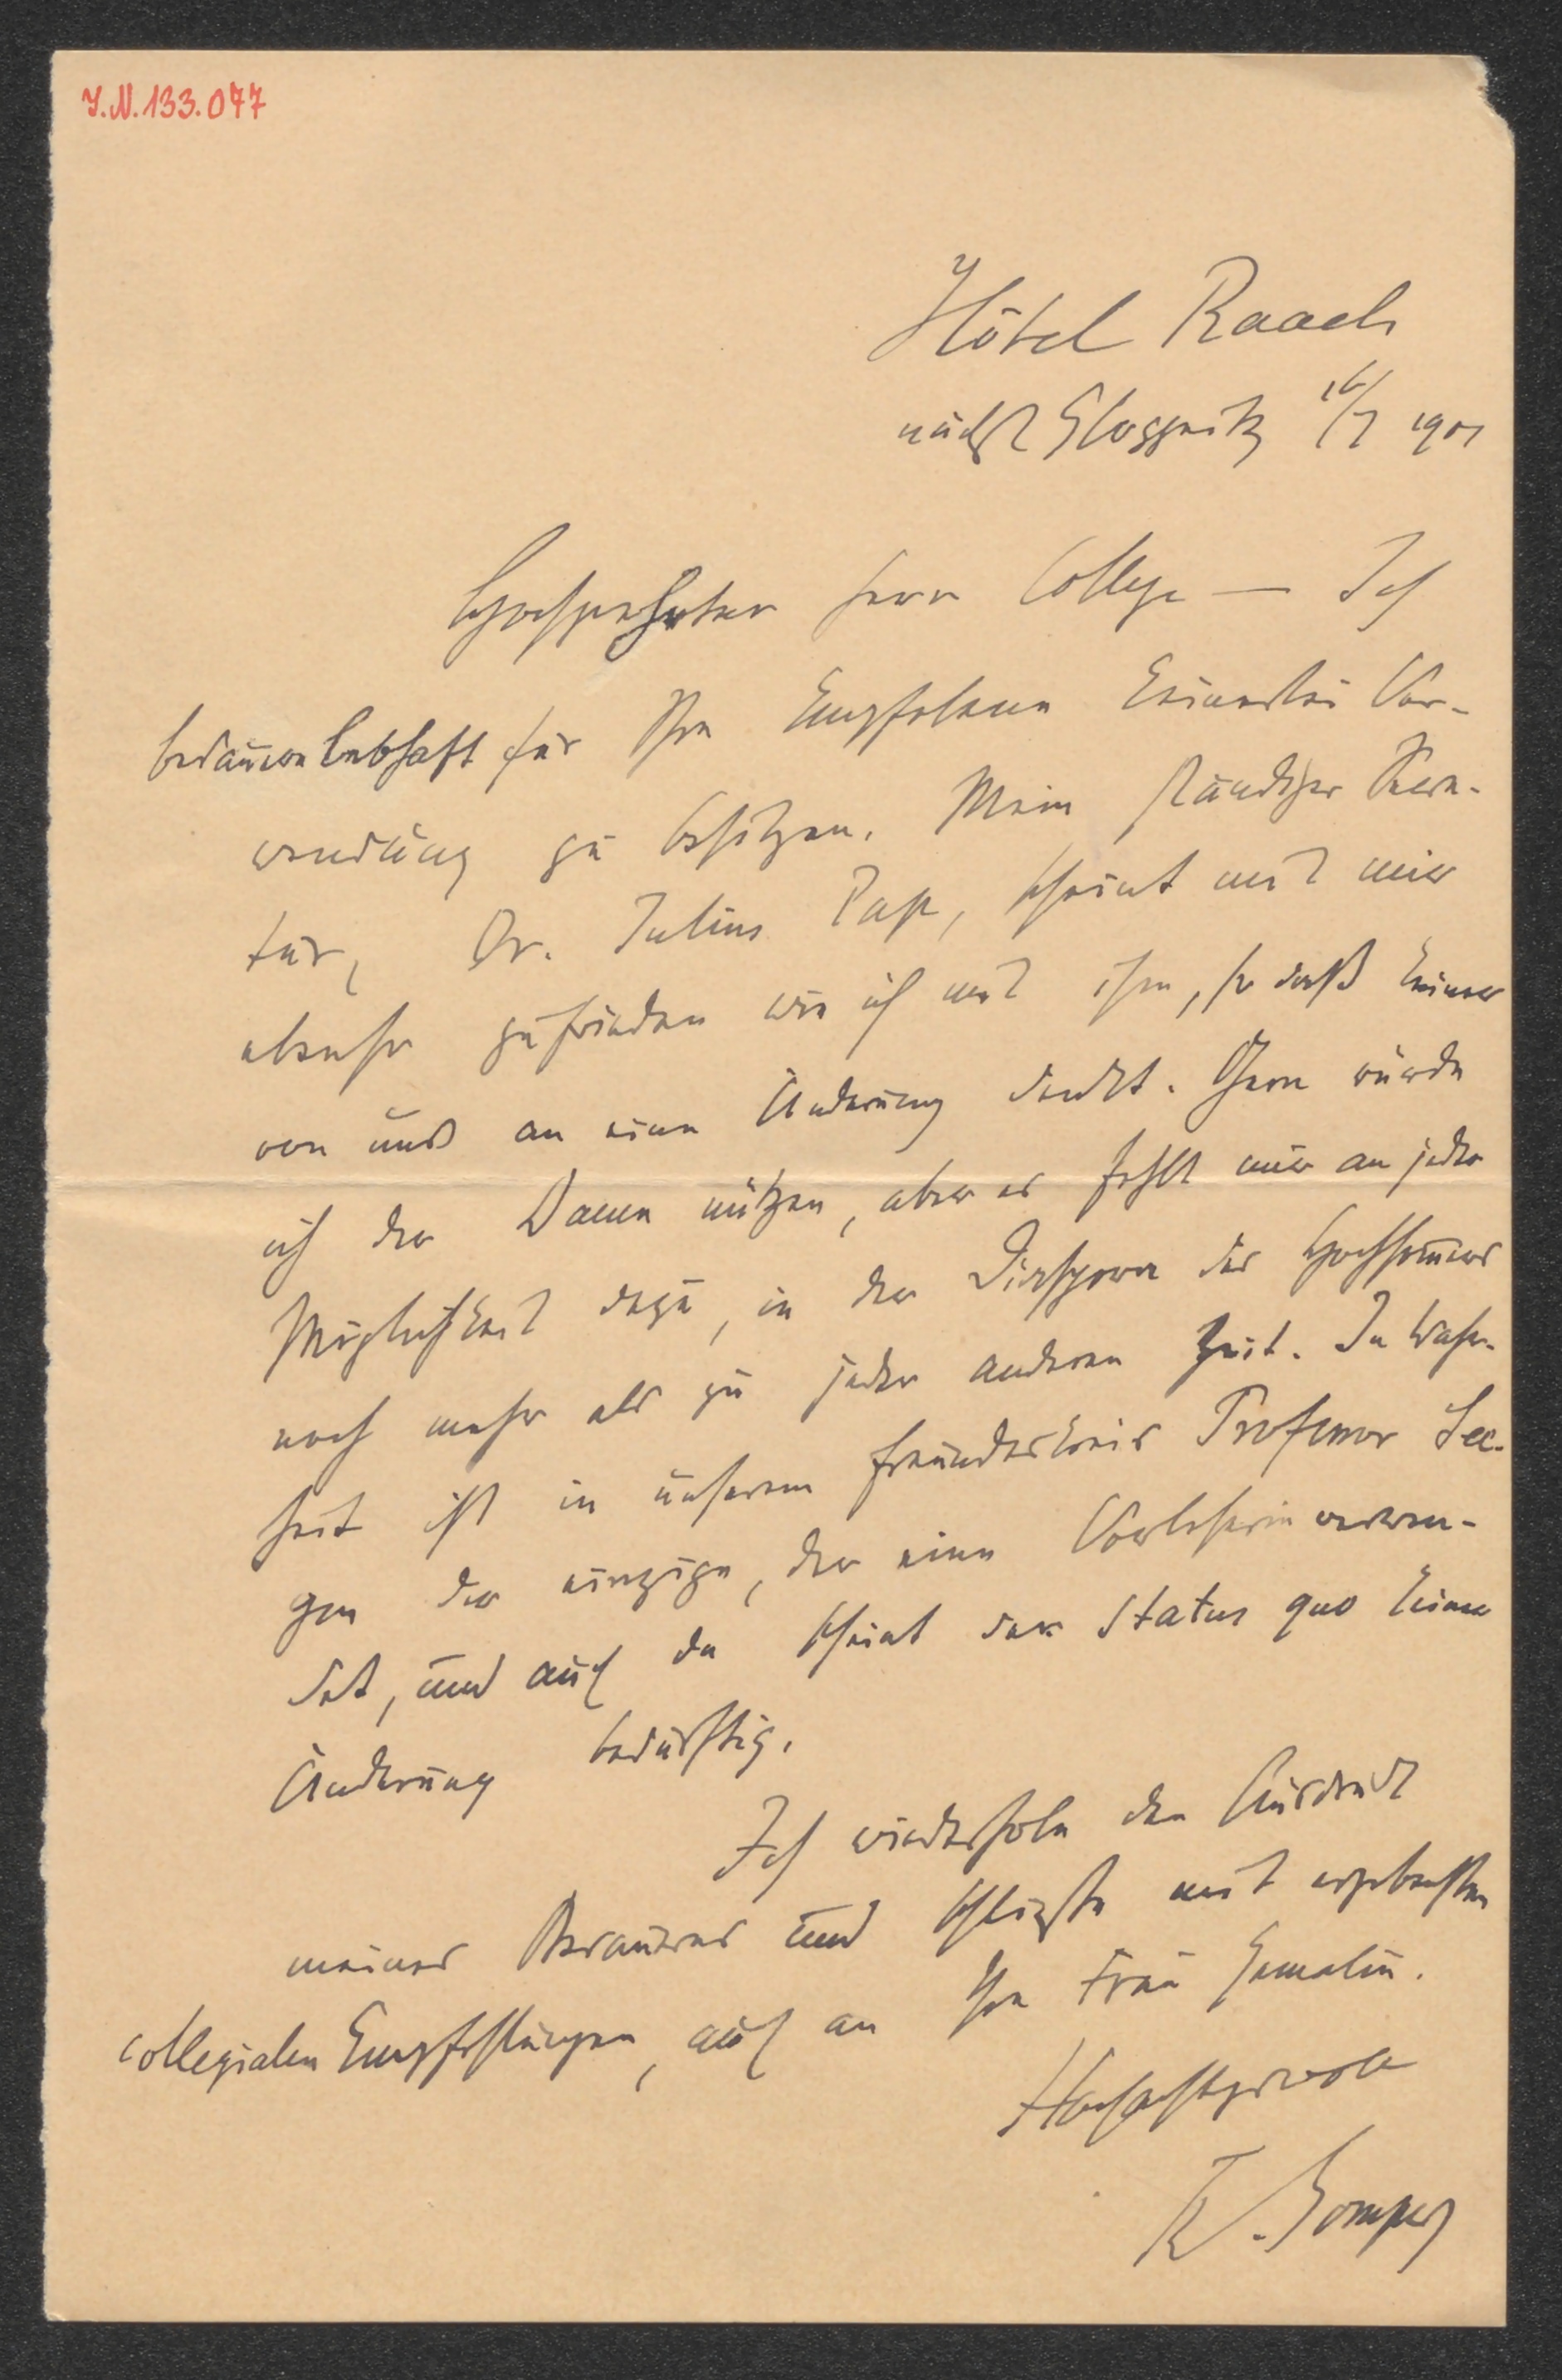 I.N. 133.077
Hôtel Raach
nächst Gloggnitz 16/7 1901
Hochgeehrter Herr College — Ich
bedauere lebhaft für Ihre Empfolene keinerlei Ver-
wendung zu besitzen. Mein ständiger Secre-
tär, Dr. Julius Pap, scheint mit mir
ebenso zufrieden wie ich mit ihm, so daß keiner
von uns an eine Änderung denkt. Gern würde
ich der Dame nützen, aber es fehlt mir an jeder
Möglichkeit dazu, in der Diaspora des Hochsommers
noch mehr als zu jeder anderen Zeit. In Wahr-
heit ist in unserem Freundeskreis Professor See-
gen der einzige, der eine Vorleserin verwen-
det, und auch da scheint der Status quo keiner
Änderung bedürftig.
Ich wiederhole den Ausdruck
meines Bedauerns und schließe mit ergebensten
collegialen Empfehlungen, auch an Ihre Frau Gemalin.
Hochachtungsvoll
Th. Gomperz